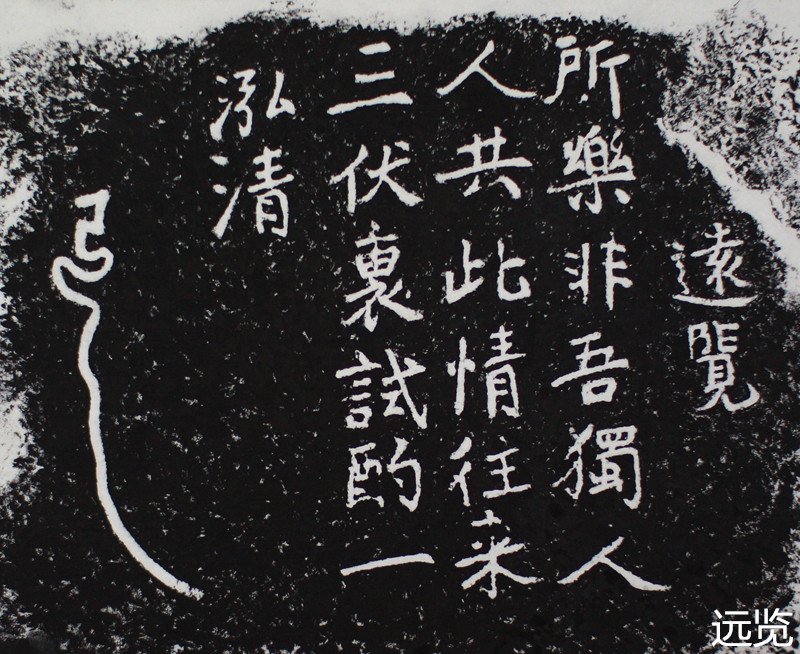 遠覽
所樂非吾獨人
人共此情往来
三伏裏試酌一
泓清
远览